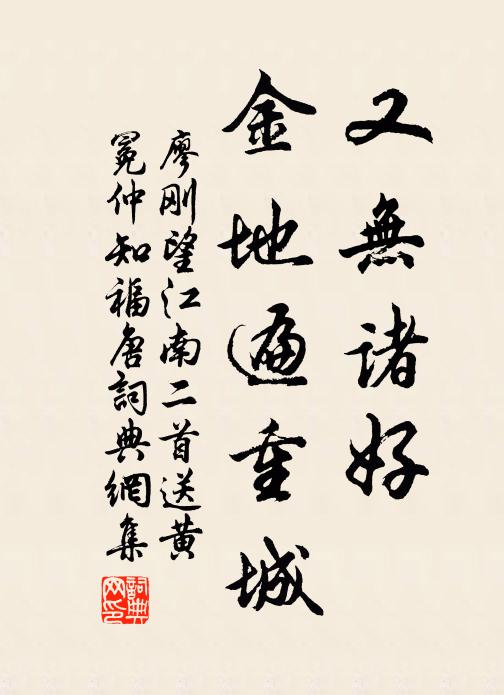 又無諸好
金地遍重城
廖刚望江南二首送黄
冕仲知福唐詞典網集
詞典网印